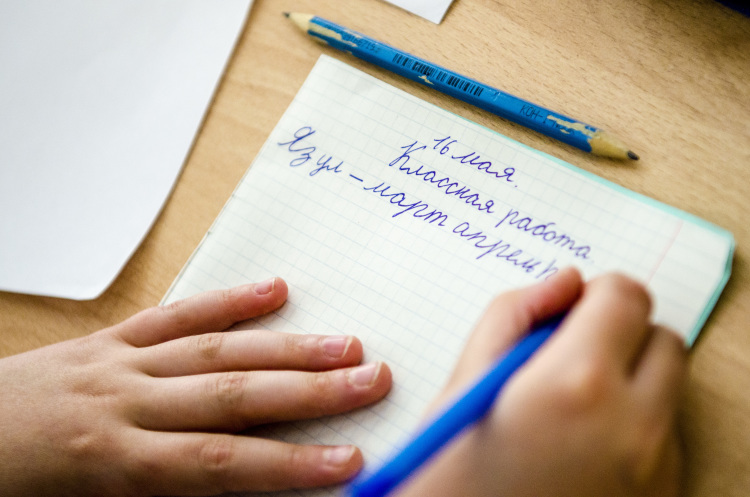 16 мая.
Классная работа.
Язул - март апрель